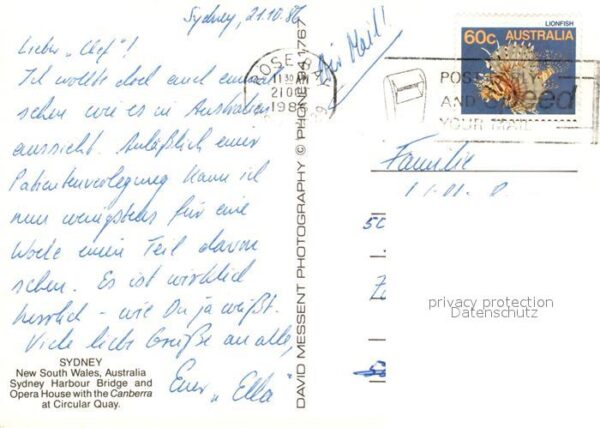 Sydney, 21.10.86
Lieber "Chef"!
Ich wollte doch auch einmal
sehen wie es in Australien
aussieht. Anläßlich einer
Patientenverlegung kann ich
nun wenigstens für eine
Woche einen Teil davon
sehen. Es ist wirklich
herrlich - wie Du ja weißt.
Viele liebe Grüße an alle,
Euer "Ella"
SYDNEY
New South Wales, Australia
Sydney Harbour Bridge and
Opera House with the Canberra
at Circular Quay.
DAVID MESSENT PHOTOGRAPHY © PHONE 94 1767
Air Mail!
ROSE BAY
11 30 AM
21 OC
198
LIONFISH
60c AUSTRALIA
POST
AND Speed
YOUR MAIL
Familie
50
privacy protection
Datenschutz